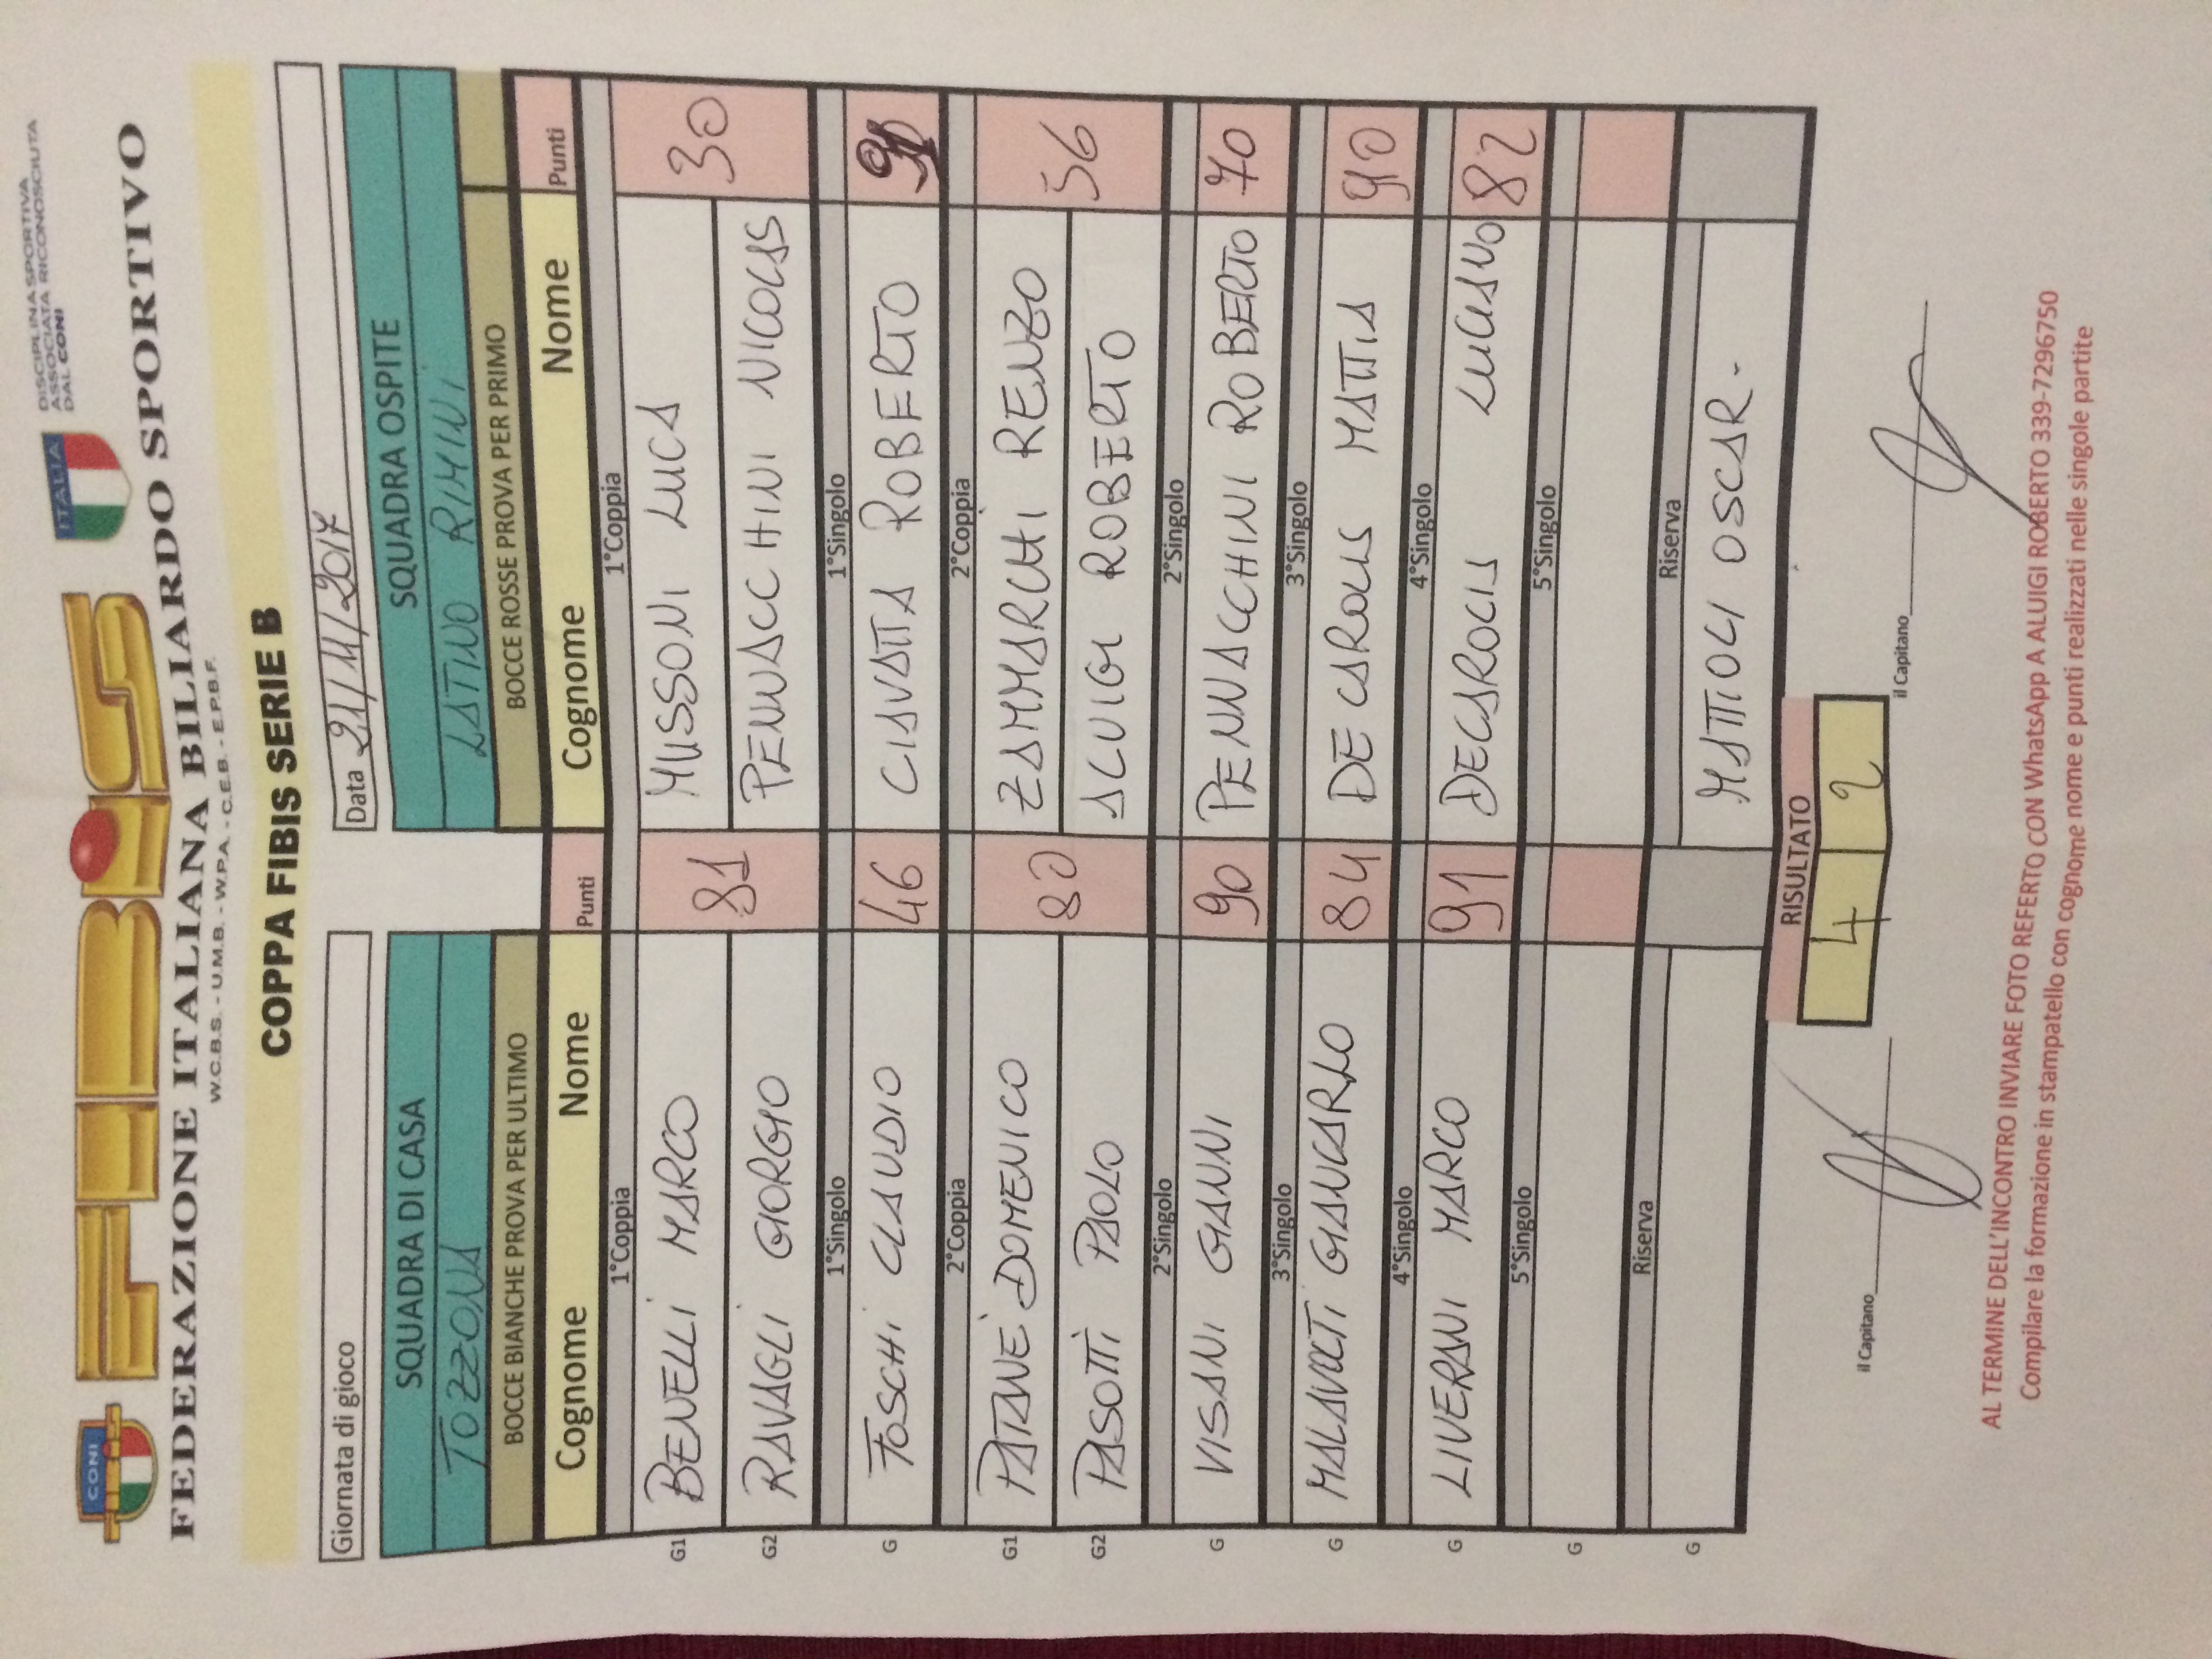 CONI
FIBiS
ITALIA
DISCIPLINA SPORTIVA
ASSOCIATA RICONOSCIUTA
DAL CONI
FEDERAZIONE ITALIANA BILIARDO SPORTIVO
W.C.B.S. - U.M.B. - W.P.A. - C.E.B. - E.P.B.F.
COPPA FIBIS SERIE B
Giornata di gioco Data 21/11/2017
SQUADRA DI CASA SQUADRA OSPITE
TOZZONA LATINO RIMINI
BOCCE BIANCHE PROVA PER ULTIMO BOCCE ROSSE PROVA PER PRIMO
Cognome Nome Punti Cognome Nome Punti
1°Coppia 1°Coppia
G1 BENELLI MARCO 81 MUSSONI LUCA 30
G2 RAVAGLI GIORGIO PENNACCHINI NICOLAS
1°Singolo 1°Singolo
G FOSCHI CLAUDIO 46 CIAVATTA ROBERTO
2°Coppia 2°Coppia
G1 PATANE' DOMENICO 80 ZAMMARCHI RENZO 56
G2 PASOTTI PAOLO ALUIGI ROBERTO
2°Singolo 2°Singolo
G VISANI GIANNI 90 PENNACCHINI ROBERTO 70
3°Singolo 3°Singolo
G MALAVOLTI GIANCARLO 84 DE CAROLIS MATTIA 90
4°Singolo 4°Singolo
G LIVERANI MARCO 91 DECAROLIS LUCIANO 82
5°Singolo 5°Singolo
G
Riserva Riserva
G MATTIOLI OSCAR.
RISULTATO
4 2
il Capitano il Capitano
AL TERMINE DELL'INCONTRO INVIARE FOTO REFERTO CON WhatsApp A ALUIGI ROBERTO 339-7296750
Compilare la formazione in stampatello con cognome nome e punti realizzati nelle singole partite